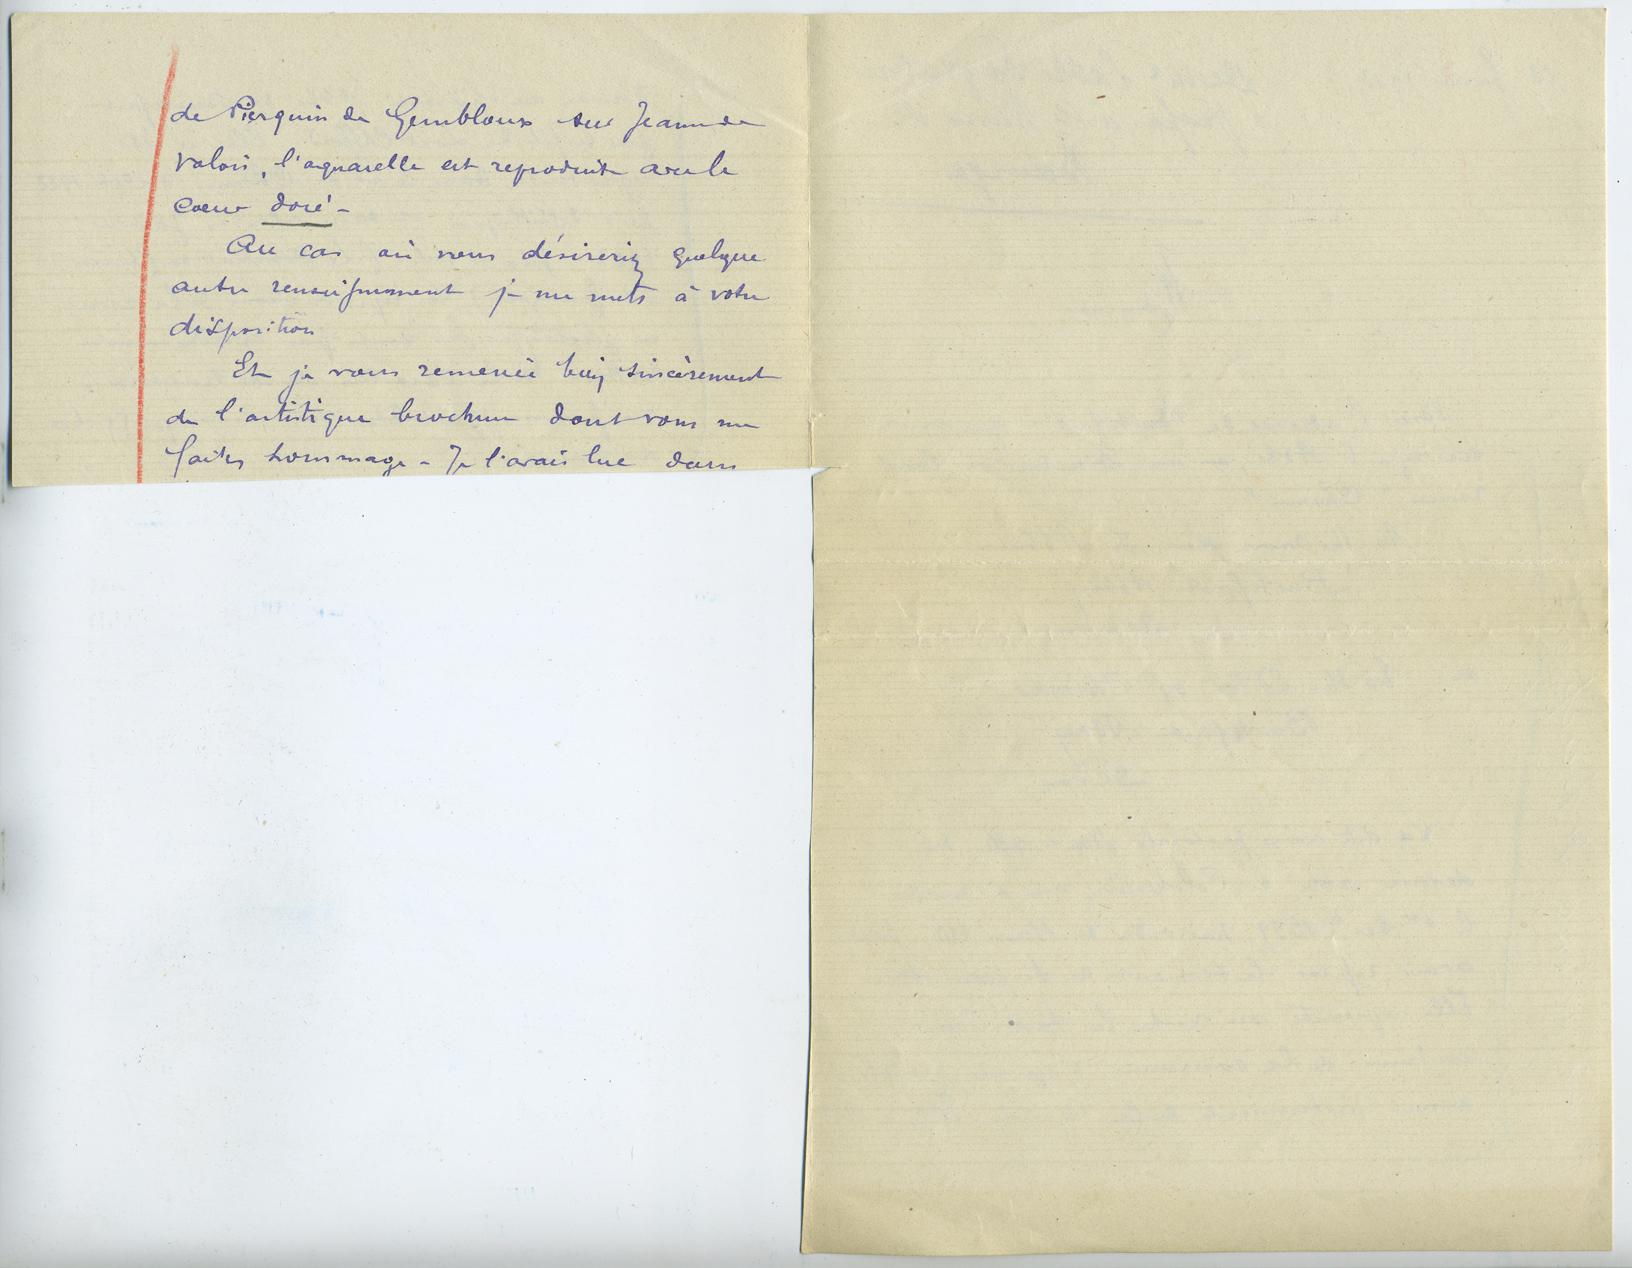 de Pierquin de Gembloux sur Jeanne de
Valois, l'aquarelle est reproduite avec le
coeur doré -
Au cas où vous désireriez quelque
autre renseignement je me mets à votre
disposition
Et je vous remercie bien sincèrement
de l'artistique brochure dont vous me
faites hommage - Je l'avais lue dans